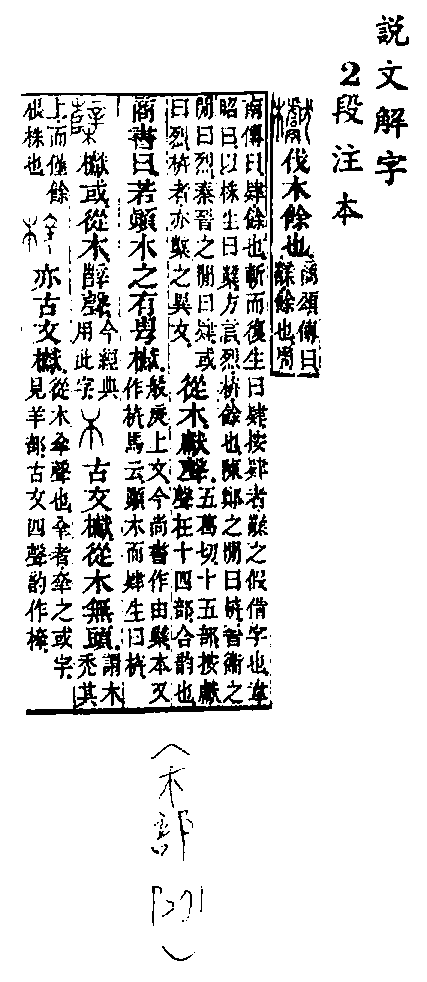 說文解字
2段注本
伐木餘也
商頌傳曰
櫱餘也周
南傳曰肄餘也斬而復生曰肄按肄者櫱之假借字也韋
昭曰以株生曰櫱方言烈枿餘也陳鄭之閒曰枿晉衞之
閒曰烈秦晉之閒曰肄或
曰烈枿者亦櫱之異文
從木獻聲
五葛切十五部按獻
聲在十四部合韵也
商書曰若顚木之有㽕𣡌
般庚上文今尚書作由櫱本又
作枿馬云顚木而肄生曰枿
𣡌或從木辥聲
今經典
用此字
古文𣡌從木無頭
謂木
禿其
上而僅餘
根株也
亦古文𣡌
從木
聲也
者
之或字
見羊部古文四聲韵作
(木部
)